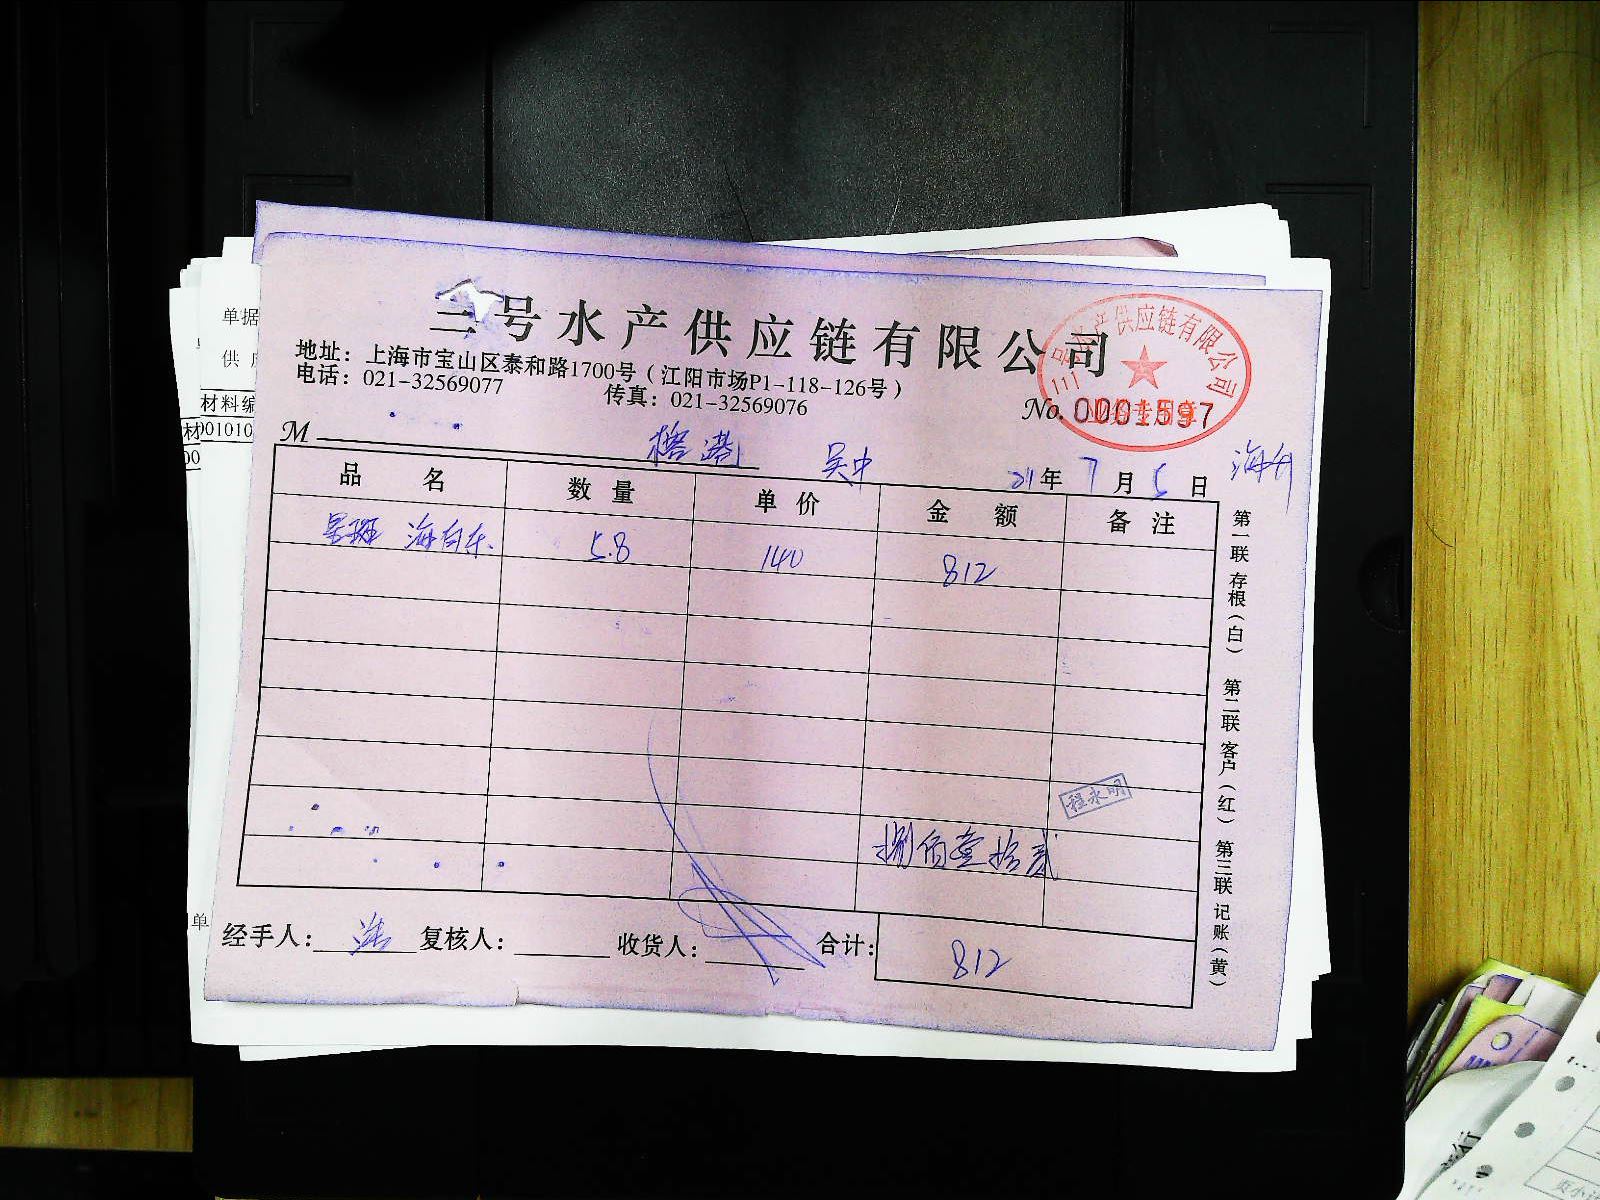 三号水产供应链有限公司
地址：上海市宝山区泰和路1700号（江阳市场P1-118-126号）
电话：021-32569077 传真：021-32569076
三号水产供应链有限公司
业务专用章
No. 0001597
M 榕港 吴中 21年7月5日
品 名 数 量 单 价 金 额 备 注
星斑 5.8 140 812
程永明
捌佰壹拾贰
经手人： 复核人： 收货人： 合计： 812
第一联 存根（白） 第二联 客户（红） 第三联 记账（黄）
单据
供
材料编
00101
单